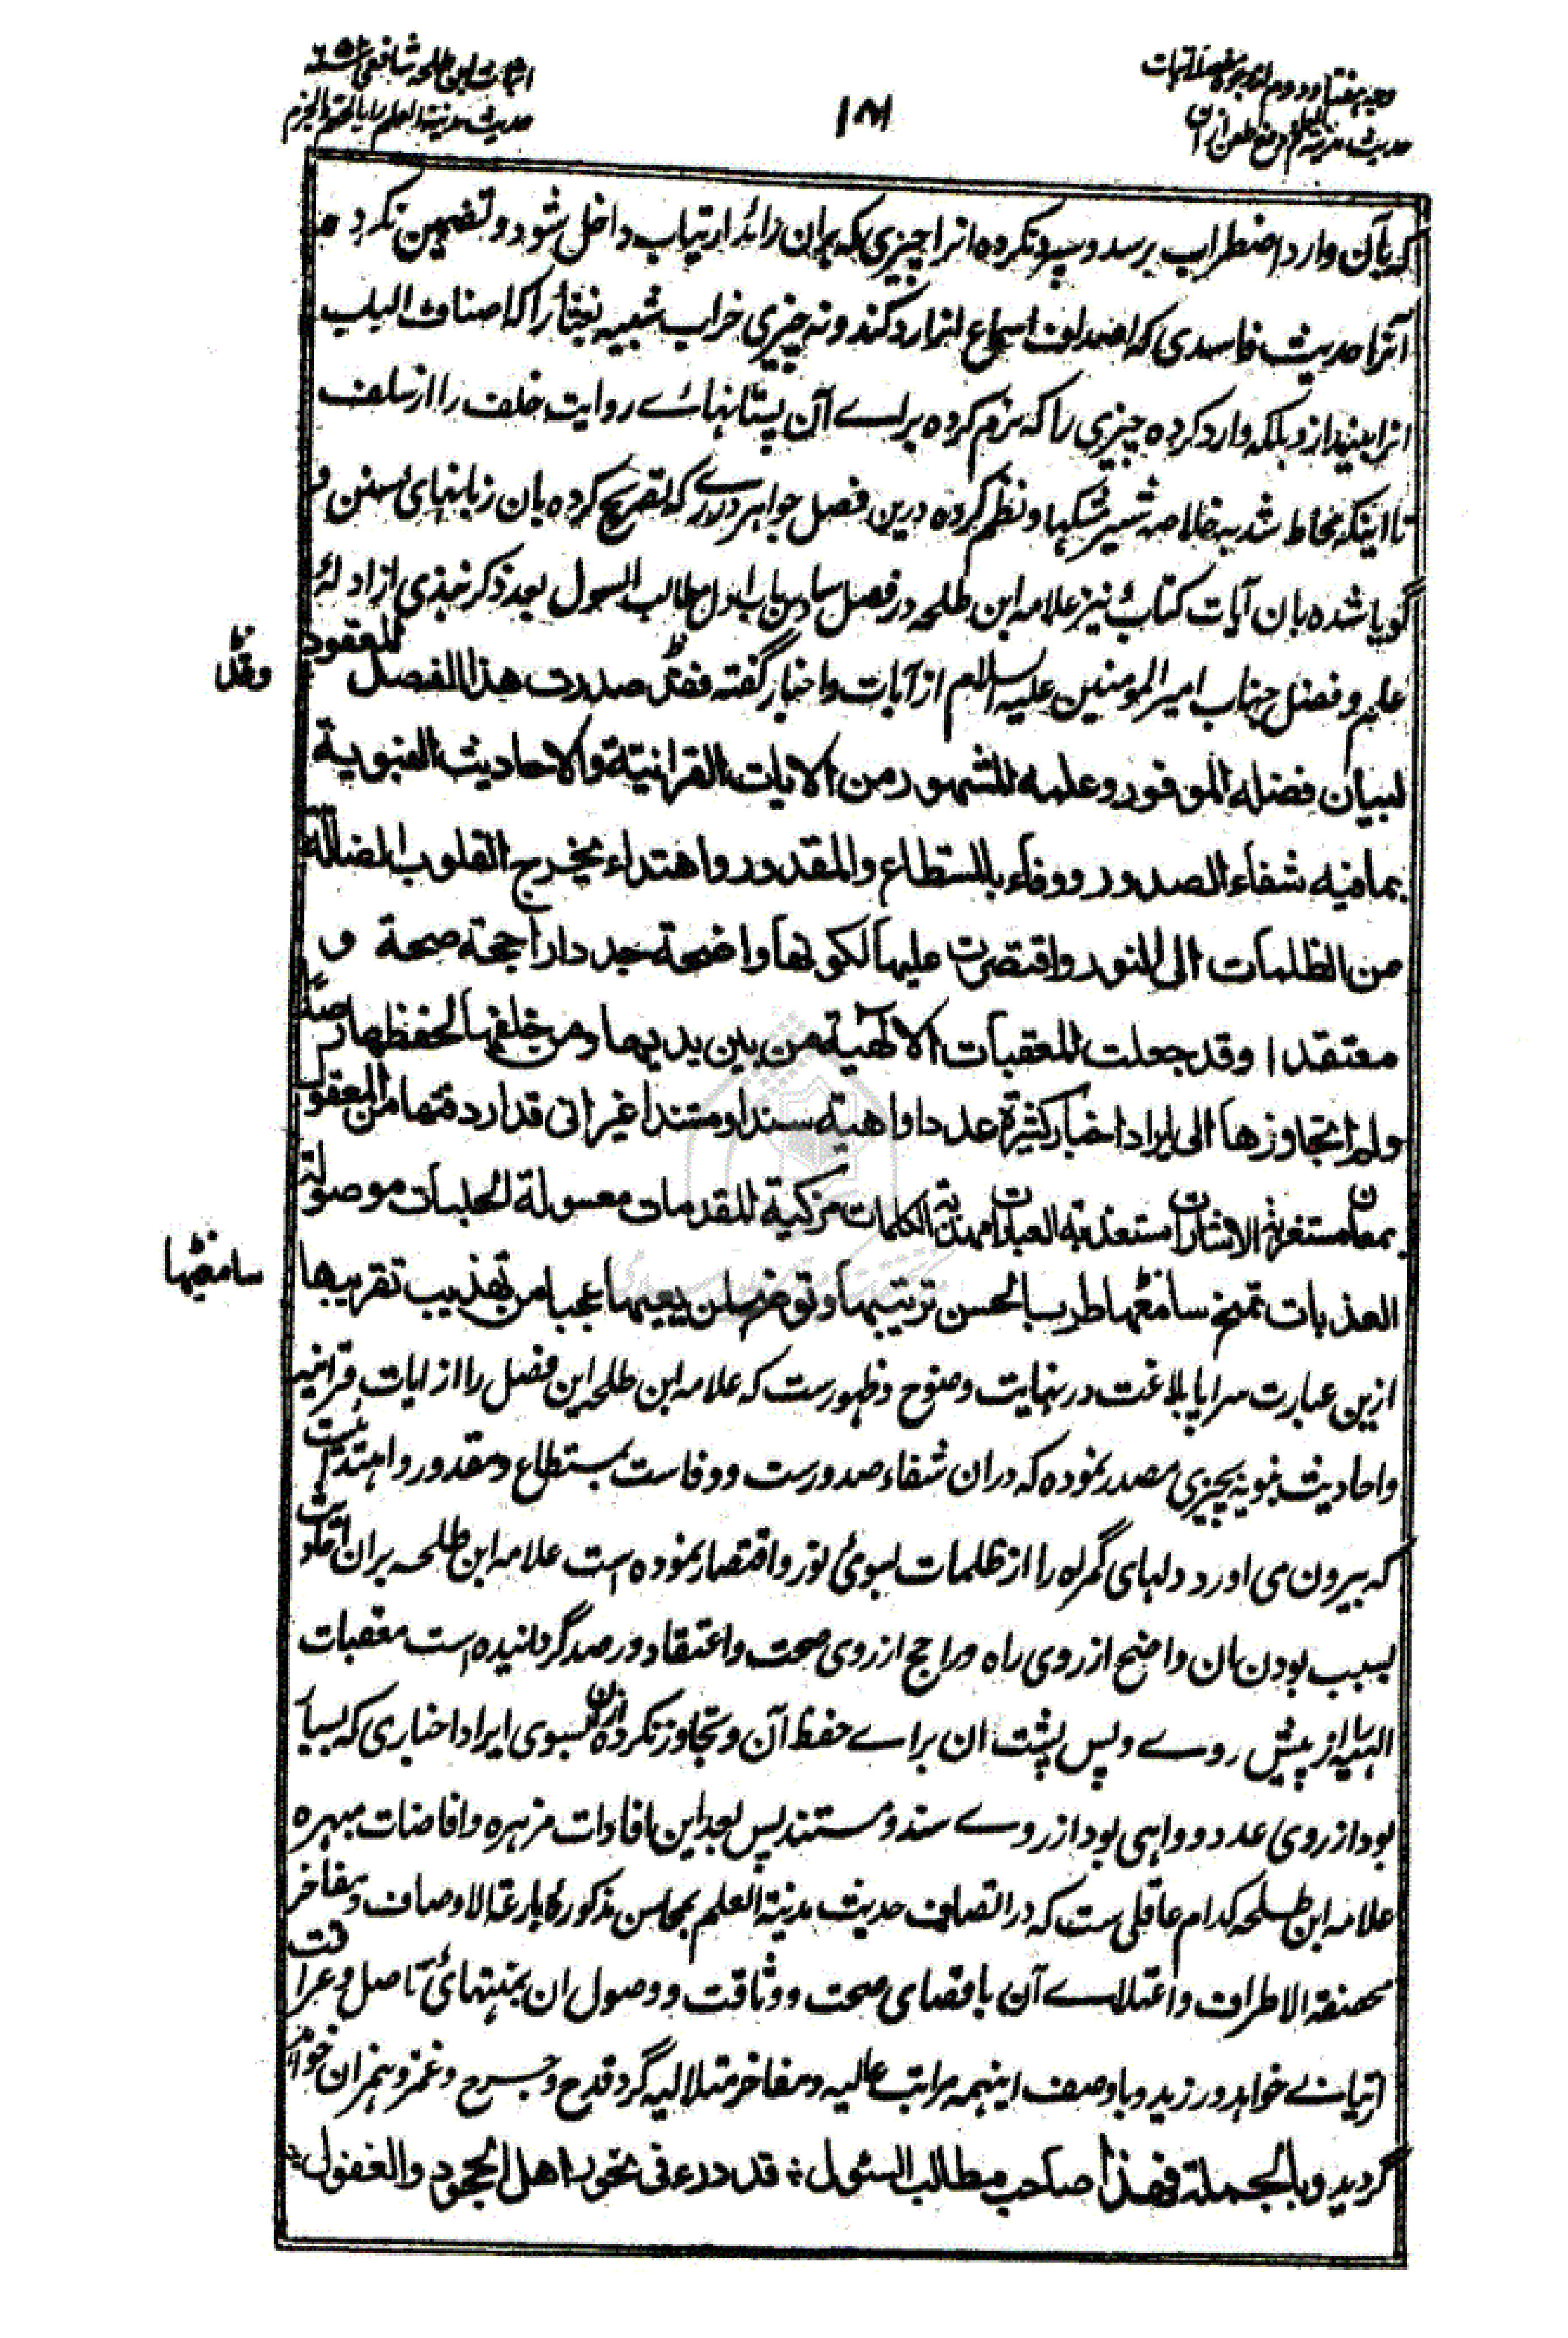 وجه هفتاد و دوم از وجوه مفصله اثبات
حدیث مدینة العلم و دفع طعن از ان
۱۸۱
اثبات ابن طلحه شافعی
حدیث مدینة العلم را بالحتم والجزم
که بآن وارد اضطراب برسد و سپرد نکرده انرا چیزی که بران زائد ارتیاب داخل شود و تضمین نکرده
آنرا حدیث فاسدی که اصداف اسماع انرا رد کند و نه چیزی خراب شبیه نفثا را که اصناف الباب
انرا بیندازد بلکه وارد کرده چیزی را که بزم کرده براے آن پستانهاے روایت خلف را از سلف
تا اینکه محاط شد به خلاصه شیر مشکها و نظم کرده درین فصل جواهر درر که تصریح کرده بان زبانهای سنن و
گویا شده بان آیات کتاب نیز علامه ابن طلحه در فصل سادس باب اول مطالب السول بعد ذکر نبذی از ادلهٔ
علم و فضل جناب امیر المومنین علیه السلام از آیات و اخبار گفته فقد صدرت هذا الفصل المعقود
وقد
لبیان فضله الموفور وعلمه المشهور من الایات القرانیة والاحادیث النبویة
بما فیه شفاء الصدور ووفاء بالمستطاع والمقدور واهتداء یخرج القلوب الضالة
من الظلمات الی النور واقتصرت علیها لکونها واضحة جددا راجحة صحة و
معتقدا وقد جعلت المعقبات الالهیة من بین یدیها ومن خلفها لحفظها رصدا
ولم اتجاوزها الی ایراد اخبار کثیرة عددا واهیة سندا ومستندا غیر انی قد اردفتها من المعقول
بمعان مستغربة الاشارات مستعذبة العبارات مهذبة الکلمات مزکیة المقدمات معسولة الحلبات موصولة
العذبات تمنح سامعها طربا لحسن ترتیبها وتوضح لمن یعیها عجبا من تهذیب تقریبها
سامعیها
ازین عبارت سراپا بلاغت در نهایت وضوح و ظهورست که علامه ابن طلحه این فصل را از ایات قرانیه
واحادیث نبویه بچیزی مصدر نموده که دران شفاء صدورست و وفاست بمستطاع و مقدور و اهتداست
که بیرون می اورد دلهای گمراه را از ظلمات بسوئ نور و اقتصار نموده است علامه ابن طلحه بران
بسبب بودن ان واضح از روی راه و راجح از روی صحت و اعتقاد و رصد گردانیده است معقبات
الهیه از پیش روے و پس پشت ان براے حفظ آن و تجاوز نکرده ازان بسوی ایراد اخباری که بسیار
بود از روی عدد و واهی بود از روے سند و مستند پس بعد این افادات مزهره و افاضات مبهره
علامه ابن طلحه کدام عاقلی ست که در اتصاف حدیث مدینة العلم بمحاسن مذکورهٔ بارعة الاوصاف و مفاخر
محصنفة الاطراف و اعتلاے آن باقصای صحت و وثاقت و وصول ان بمنتهائ تاصل و عراقت
ارتیابے خواهد ورزید و باوصف اینهمه مراتب عالیه و مفاخر متلالیه گرد قدح و جرح و غمز و همز ان خواهد
گردید وبالجملة فهذا صاحب مطالب السئول ٭ قد درء فی نحور اهل الجحود والغفول